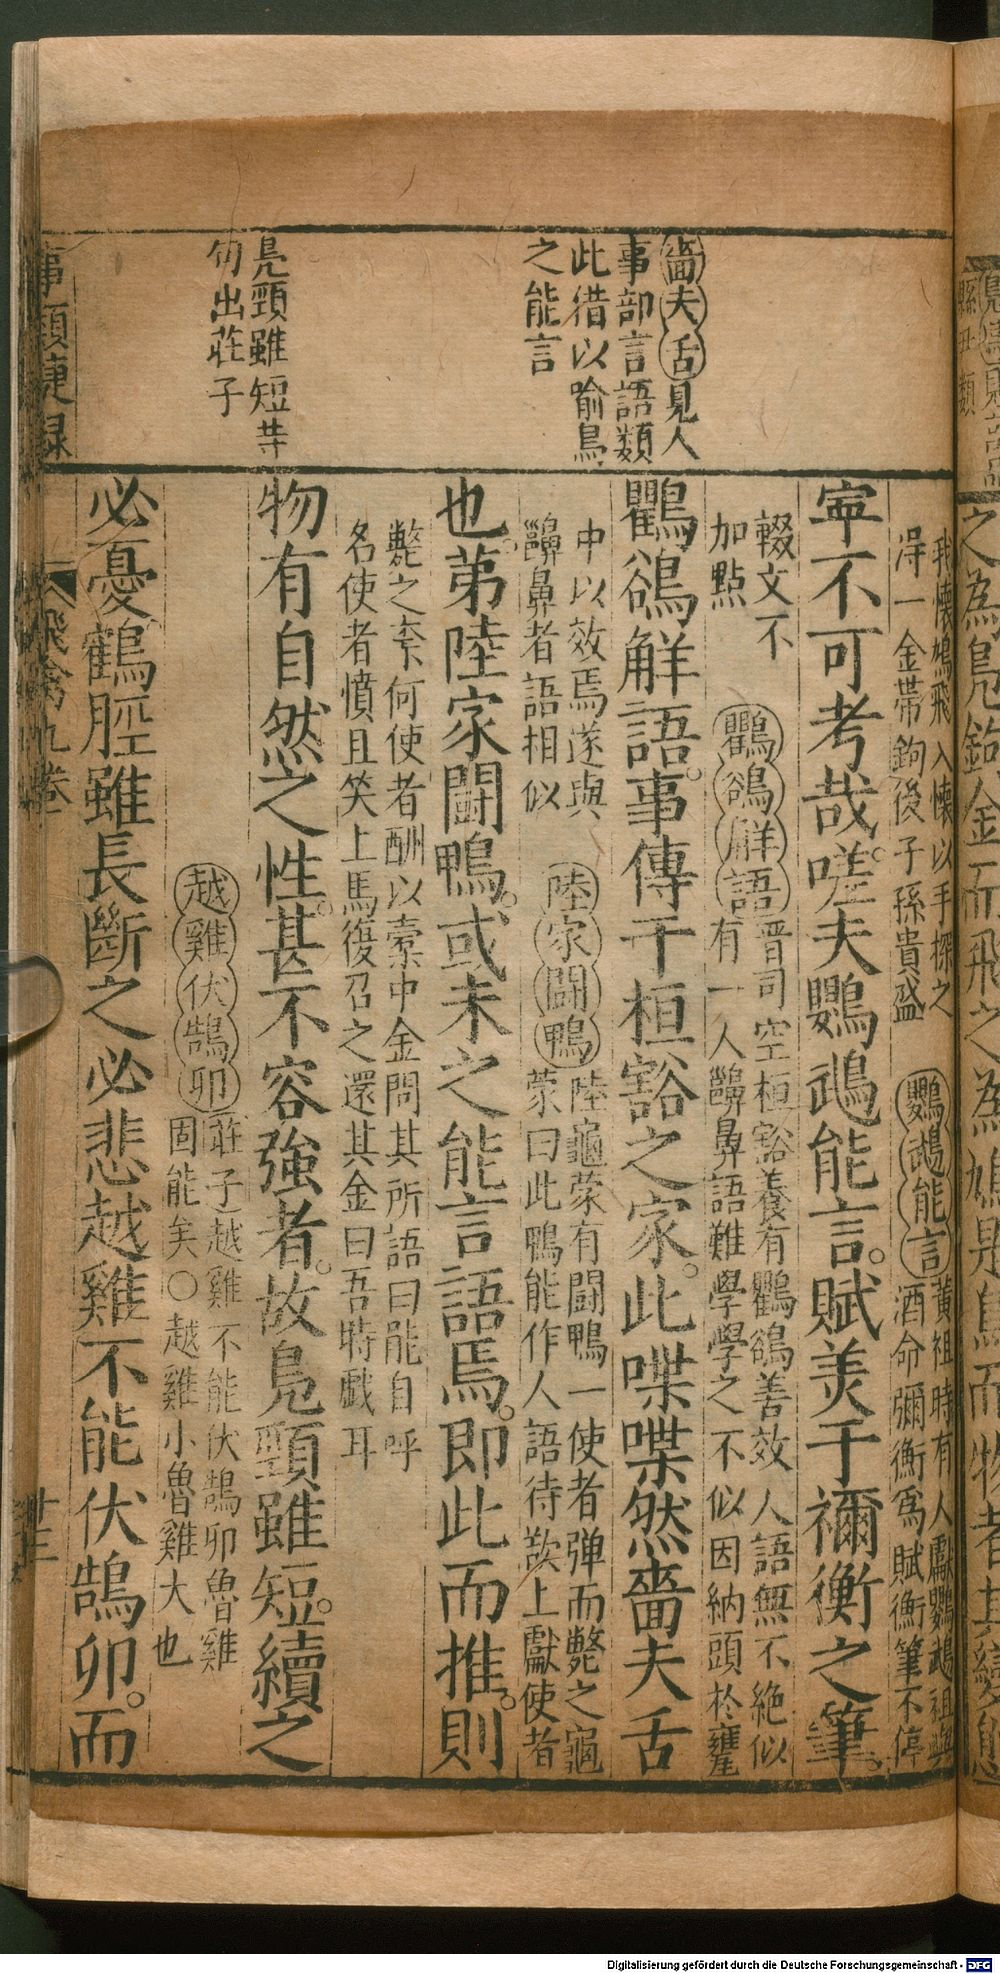 嗇夫舌見人
事部言語類
此借以喻鳥
之能言
鳧頸雖短等
句出莊子
我懷鳩飛入懷以手探之
得一金帶鉤後子孫貴盛
鸚鵡能言
黃祖時有人獻鸚鵡祖與
酒命彌衡為賦衡筆不停
寧不可考哉嗟夫鸚鵡能言賦美于禰衡之筆
輟文不
加點
鸜鵒解語
晉司空桓豁養有鸜鵒善效人語無不絕似
有一人齆鼻語難學學之不似因納頭於甕
鸜鵒解語事傳于桓豁之家此喋喋然嗇夫舌
中以效焉遂與
齆鼻者語相似
陸家鬪鴨
陸龜蒙有鬪鴨一使者弹而斃之龜
蒙曰此鴨能作人語待欲上獻使者
也第陸家鬪鴨或未之能言語焉即此而推則
斃之柰何使者酬以橐中金問其所語曰能自呼
名使者憤且笑上馬復召之還其金曰吾特戲耳
物有自然之性甚不容強者故鳧頸雖短續之
越雞伏鵠卵
莊子越雞不能伏鵠卵魯雞
固能矣〇越雞小魯雞大也
必憂鶴脛雖長斷之必悲越雞不能伏鵠卵而
事類捷録
飛禽九卷
廿三
之為鳧鉤金而飛之為鳩是鳥而物者其變態
Digitalisierung gefördert durch die Deutsche Forschungsgemeinschaft - DFG